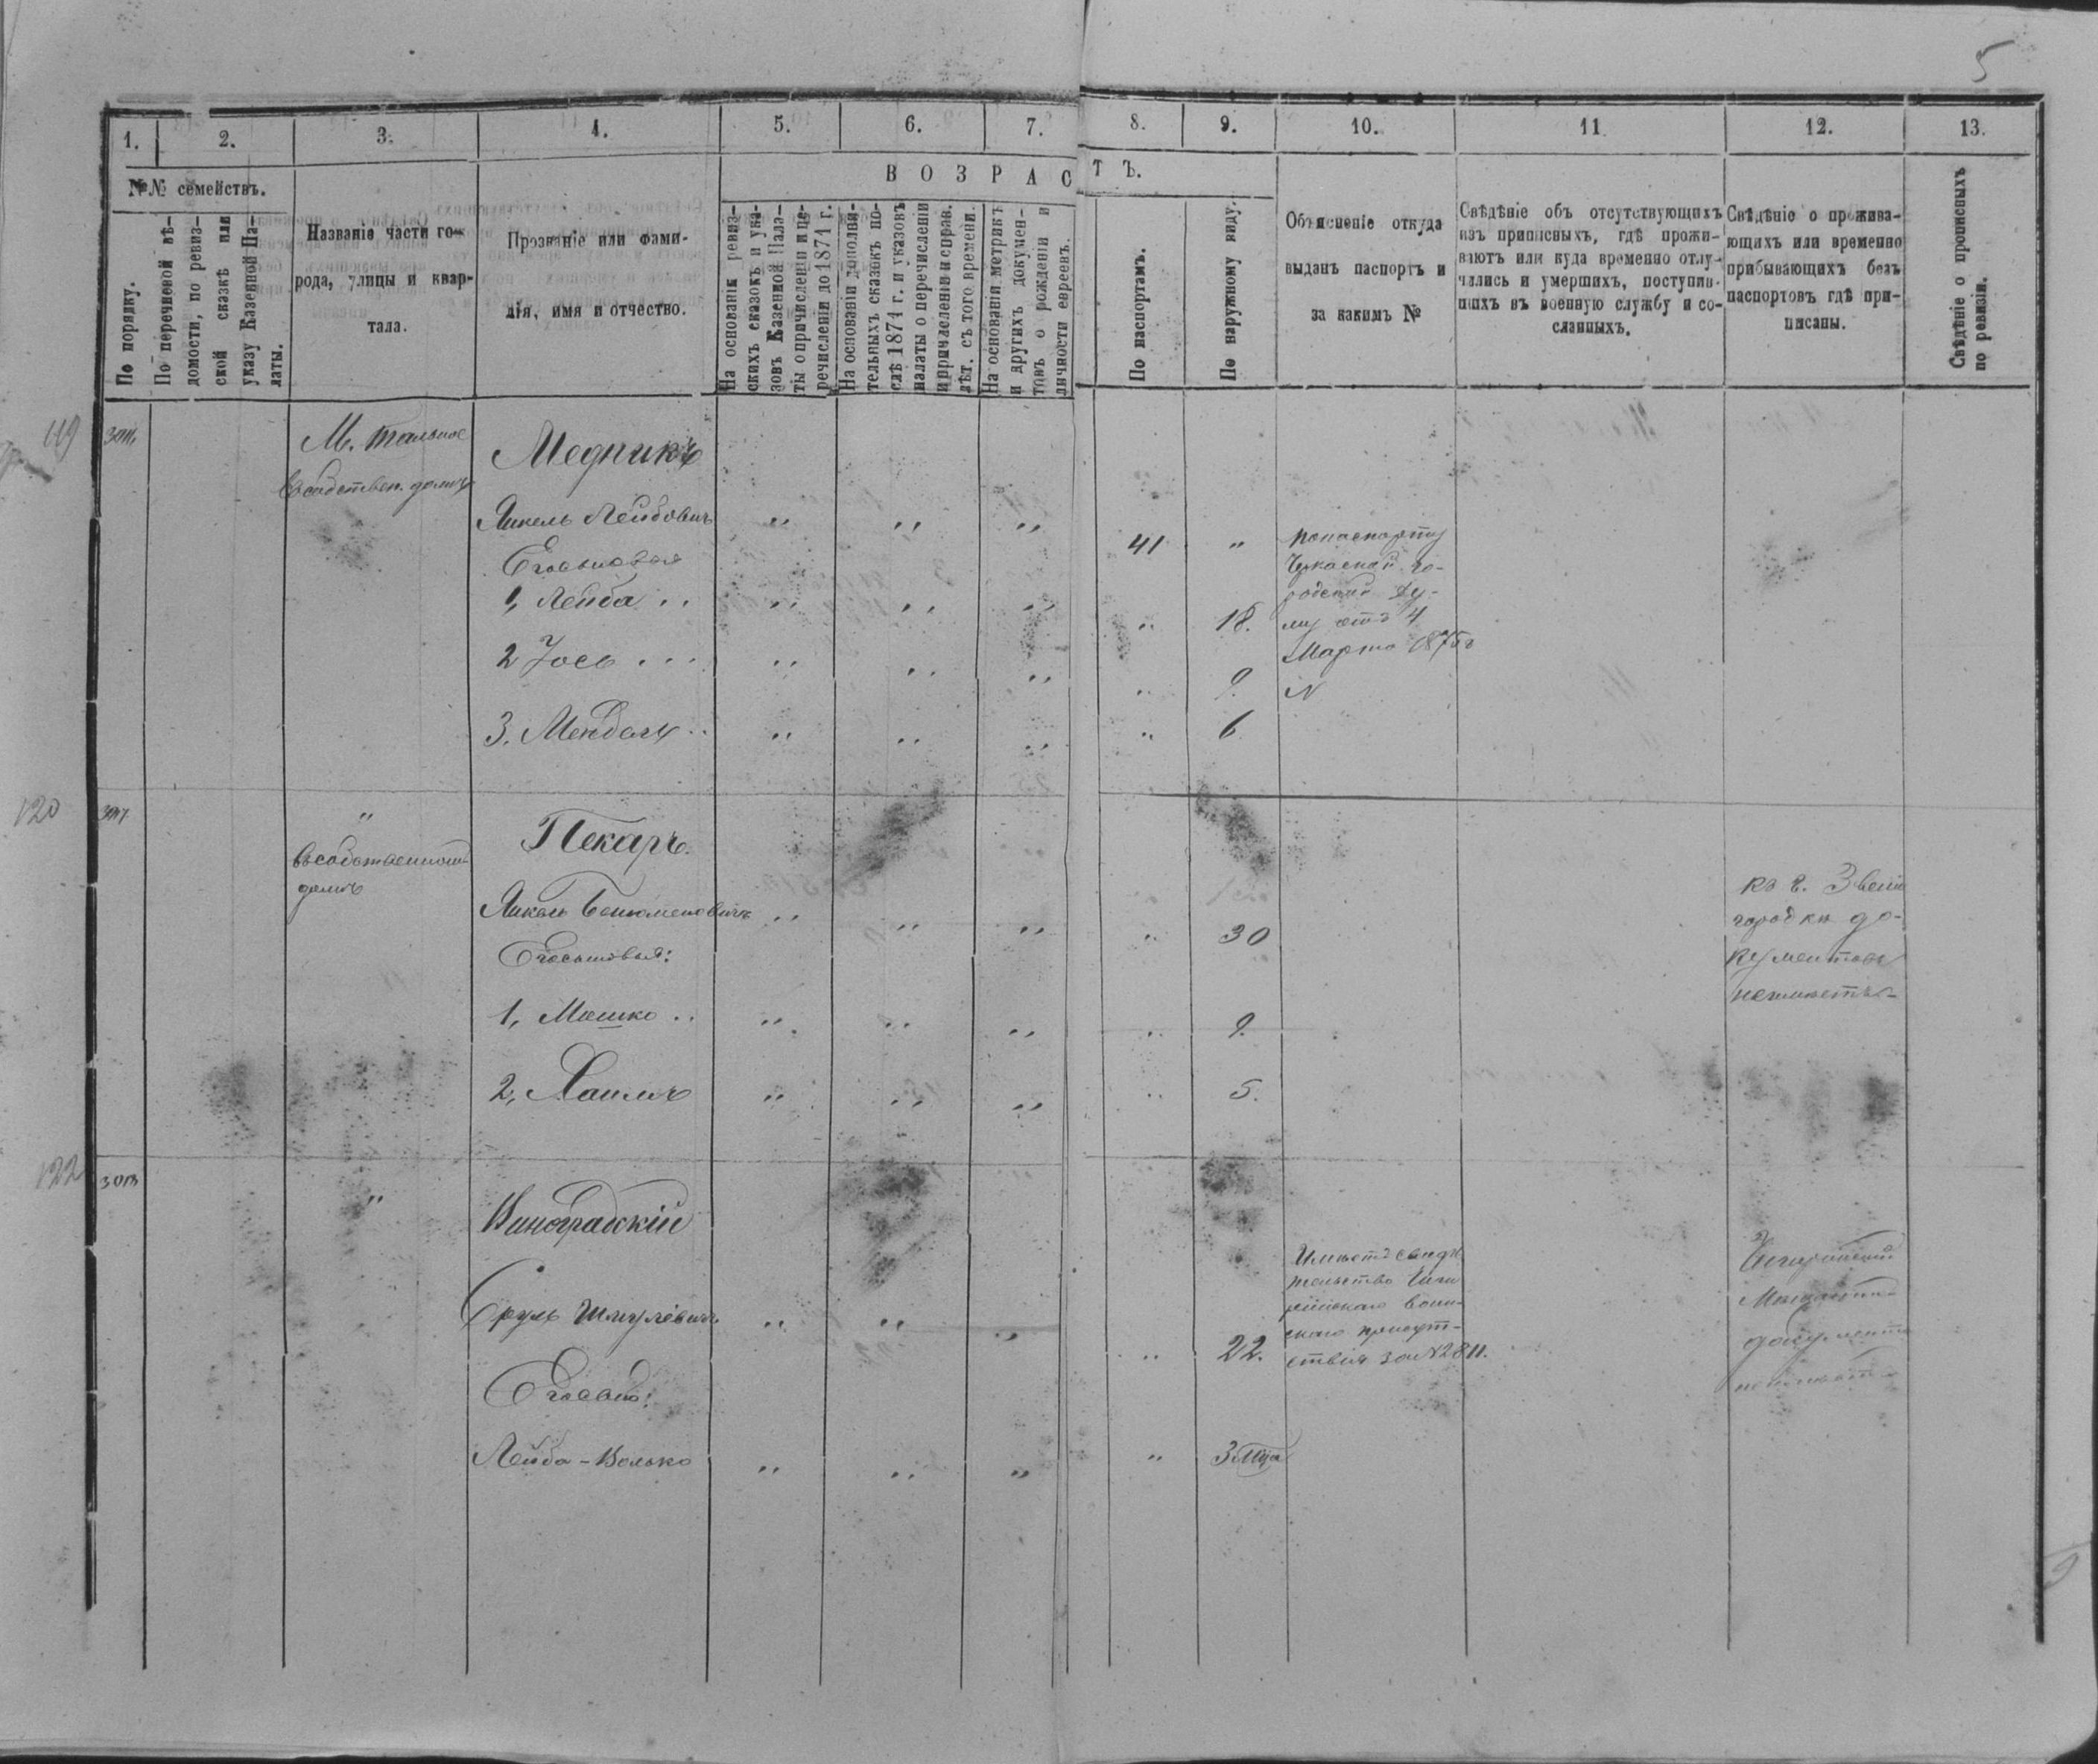 5
1.
2.
3.
4.
5.
6.
7.
8.
9.
10.
11.
12.
13.
№№ семействъ.
ВОЗРАСТЪ.
По порядку.
По перечневой вѣ-
домости, по ревиз-
ской сказкѣ или
указу Казенной Па-
латы.
Названіе части го-
рода, улицы и квар-
тала.
Прозваніе или фами-
лія, имя и отчество.
На основаніи ревиз-
скихъ сказокъ и ука-
зовъ Казенной Пала-
ты о причисленіи и пе-
речисленіи до 1874 г.
На основаніи дополни-
тельныхъ сказокъ по-
слѣ 1874 г. и указовъ
палаты о перечисленіи
и причисленіи и справ.
лѣт. съ того времени.
На основаніи метрикъ
и другихъ докумен-
товъ о рожденіи и
личности евреевъ.
По паспортамъ.
По наружному виду.
Объясненіе откуда
выданъ паспортъ и
за какимъ №
Свѣдѣніе объ отсутствующихъ
изъ приписныхъ, гдѣ прожи-
ваютъ или куда временно отлу-
чились и умершихъ, поступив-
шихъ въ военную службу и со-
сланныхъ.
Свѣдѣніе о прожива-
ющихъ или временно
прибывающихъ безъ
паспортовъ гдѣ при-
писаны.
Свѣдѣніе о прописныхъ
по ревизіи.
119
М. Тальное
Медникъ
въ собствен. домѣ
Янкель Лейбовичъ " " " 41 "
попаспорту
Черкаской го-
родской Ду-
мы отъ 4
Марта 1875 г
N
Егосыновья
1, Лейба .. " " " " 18.
2 Іось ... " " " " 9.
3. Мендель .. " " " " 6
120
"
Пекаръ.
въ собственном
домѣ
Янкель Бенюменовичъ " " " " 30
къ г. Звени
городки до-
кументовъ
неимѣетъ
Егосыновья:
1, Мошко .. " " " " 9.
2, Хаимъ " " " " 5.
122
"
Виноградскій
Сруль Шмулевичъ " " " " 22.
Имѣетъ свидѣ
тельство Чиги
ринскаго воин-
скаго присут-
ствія за N 2811.
Чигиринский
Мещанинъ
документа
неимѣетъ
Егосынъ:
Лейба-Волько " " " " 3 мца